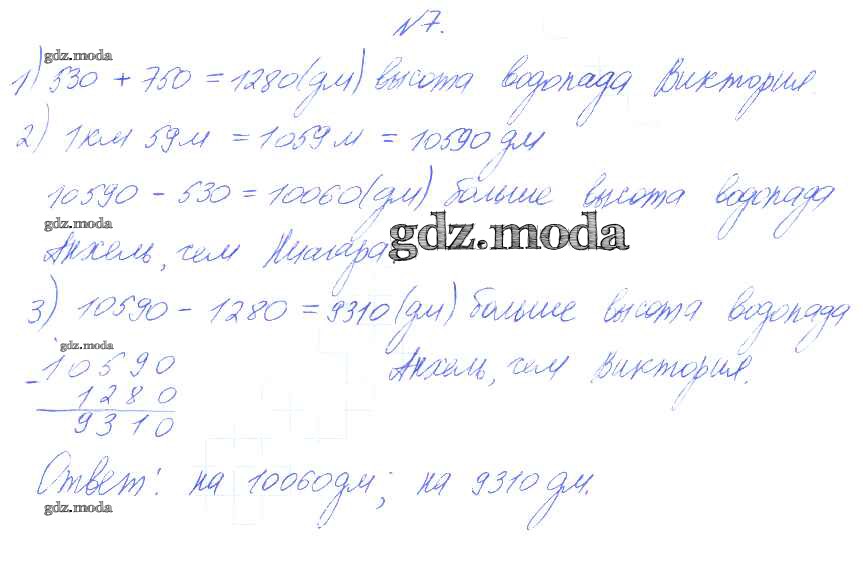 №7.
gdz.moda
1) 530 + 750 = 1280(дм) высота водопада Виктория.
2) 1км 59м = 1059м = 10590дм
10590 - 530 = 10060(дм) больше высота водопада
gdz.moda
Анхель, чем Ниагара
gdz.moda
3) 10590 - 1280 = 9310(дм) больше высота водопада
gdz.moda
Анхель, чем Виктория.
- 10590
1280
9310
Ответ: на 10060дм; на 9310дм.
gdz.moda